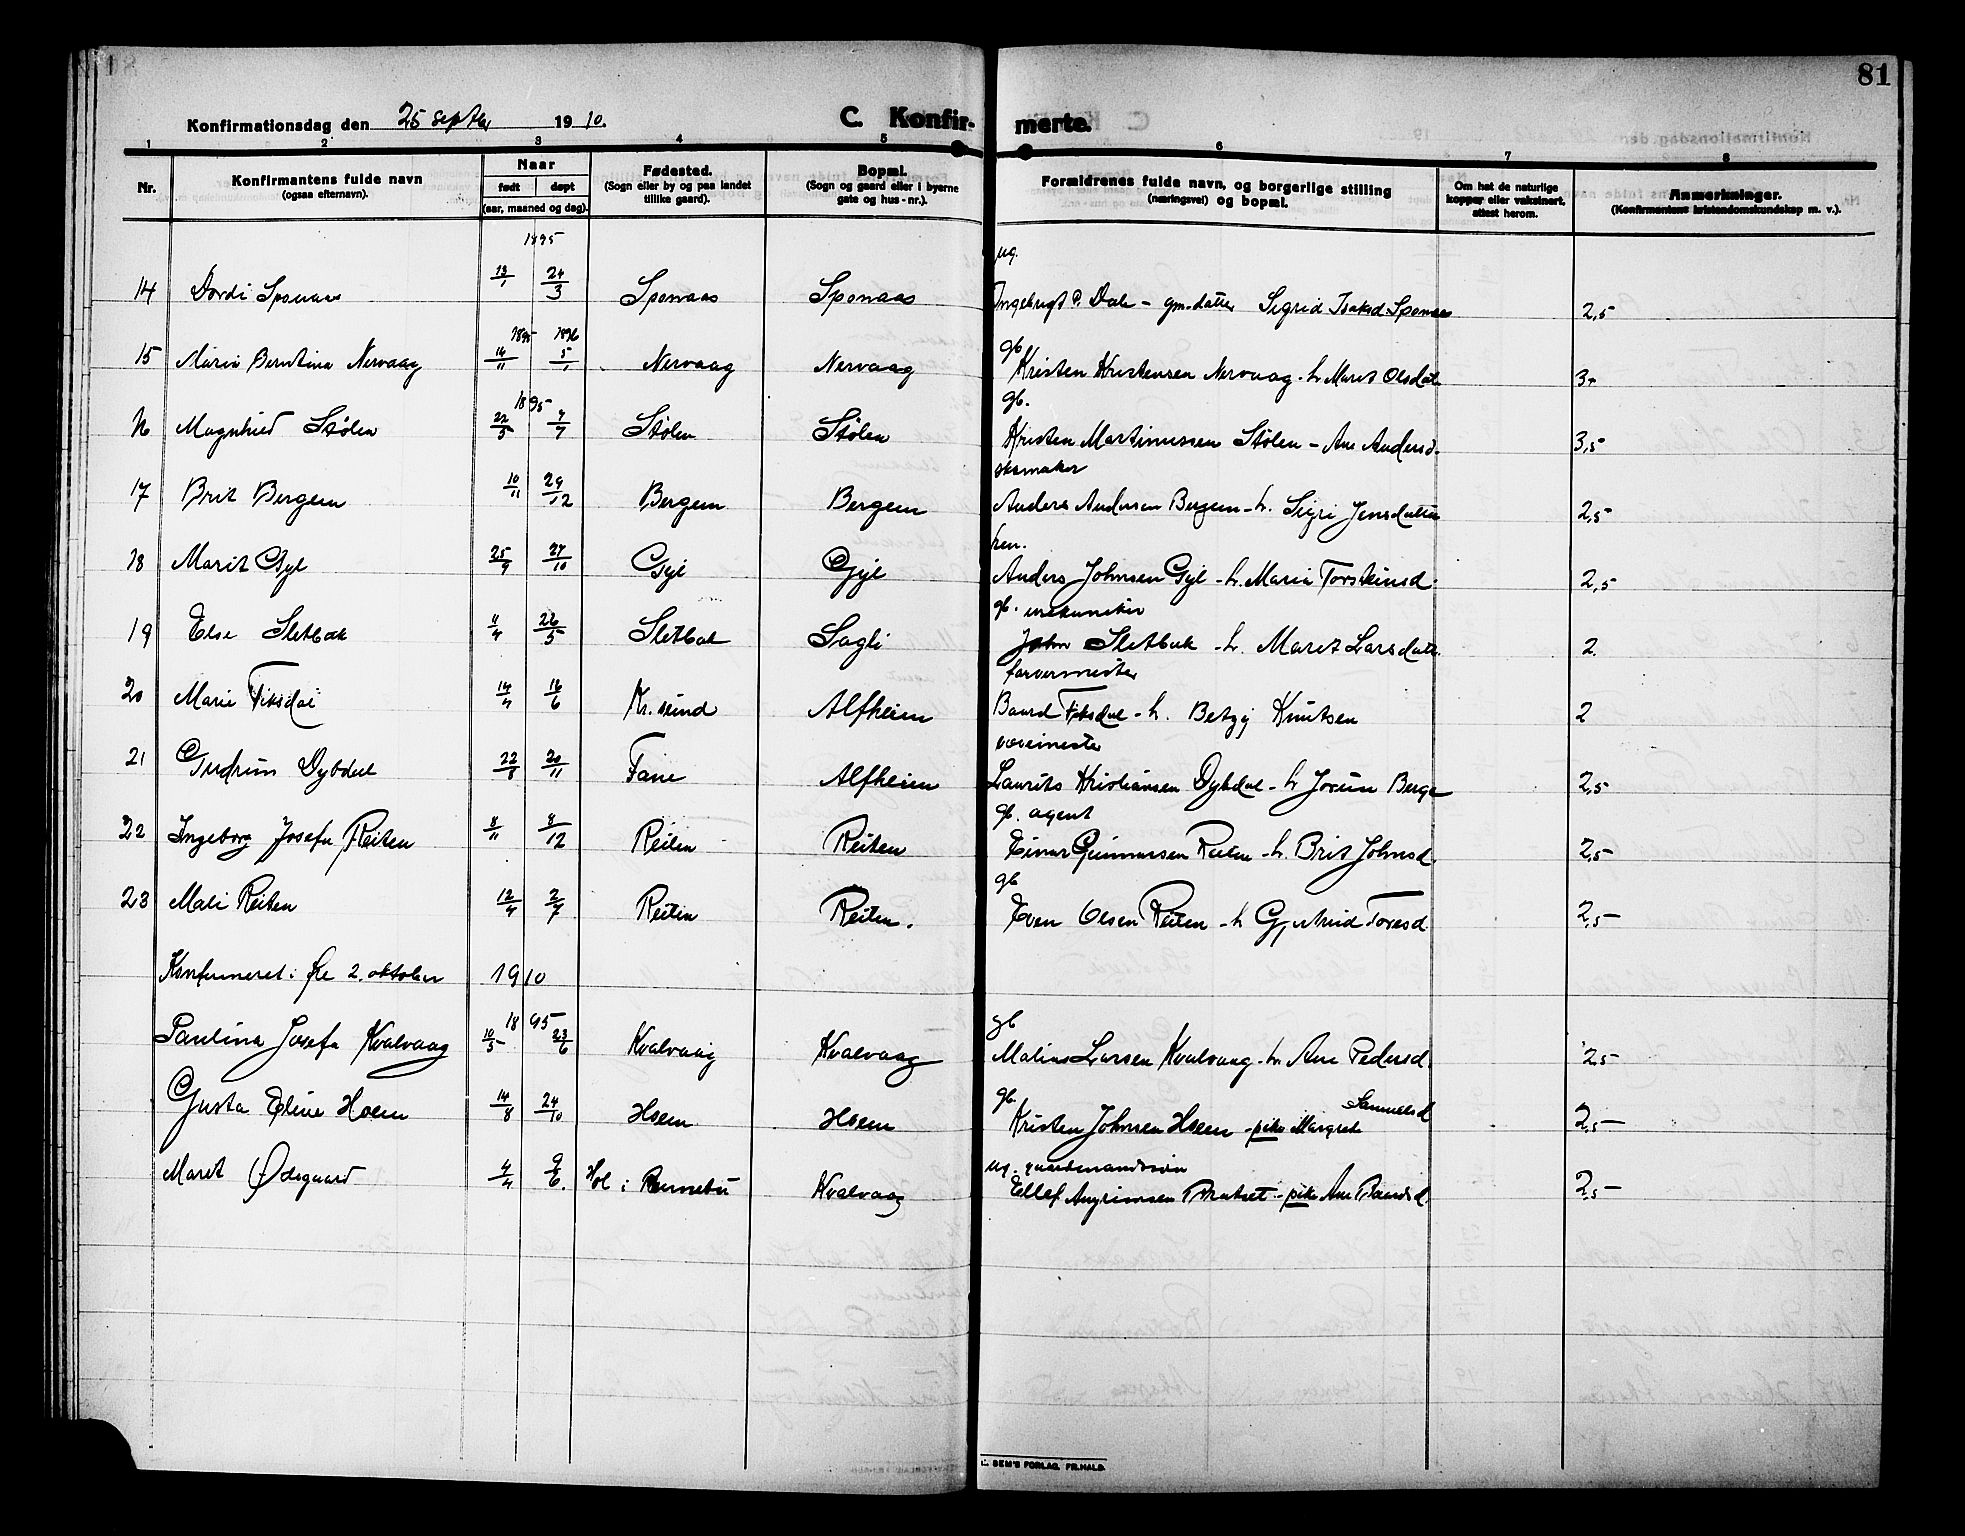 81
Konfirmationsdag den 25 septbr 1910.
C. Konfirmerte.
1 2 3 4 5 6 7 8
Nr.
Konfirmantens fulde navn
(ogsaa efternavn).
Naar
født døpt
(aar, maaned og dag).
Fødested.
(Sogn eller by og paa landet
tillike gaard).
Bopæl.
(Sogn og gaard eller i byerne
gate og hus-nr.).
Forældrenes fulde navn, og borgerlige stilling
(næringsvei) og bopæl.
Om hat de naturlige
kopper eller vaksinert,
attest herom.
Anmerkninger.
(Konfirmantens kristendomskundskap m. v.).
1895 ug.
14 Dordi Sponaas 13/1 24/3 Sponaas Sponaas Ingebrigt P. Dale - gm. datter Sigrid Isaksd Sponaas 2,5
1895 1896 gb
15 Maria Berntina Nervaag 14/11 5/1 Nervaag Nervaag Kristen Kristensen Nervaag - h. Maret Olsdat 3+
1895 gb.
16 Magnhild Stølen 22/5 7/7 Stølen Stølen Kristen Martinussen Stølen - Ane Andersd. 3,5
skomaker
17 Brit Bergem 10/11 29/12 Bergem Bergem Anders Andersen Bergem - h. Sigri Jensdatter 2,5
18 Marit Gyl 25/9 27/10 Gyl Gyl Anders Johnsen Gyl - h. Maria Torstensd. 2,5
gb.
19 Else Sletbak 11/4 26/5 Sletbak Sagli John Sletbak - h. Maret Larsdatt. 2.
farvermester
20 Marie Fiksdal 14/4 16/6 Kr. sund Alfheim Baard Fiksdal - h. Betzy Knutsen 2
21 Gudrun Dybdal 22/8 20/11 Fane Alfheim Laurits Kristiansen Dybdal - h Jorun Berge 2,5
gb. agent
22 Ingeborg Josefa Reiten 8/11 8/12 Reiten Reiten Einar Gunnarsen Reiten - h. Brit Johnsd. 2,5
gb
23 Mali Reiten 12/4 2/7 Reiten Reiten. Even Olsen Reiten - h Gjertrud Toresd. 2,5
Konfirmeret i Øre 2. oktober 1910
1895 gb
Paulina Josefa Kvalvaag 10/5 23/6 Kvalvaag Kvalvaag Malius Larsen Kvalvaag - h. Ane Pedersd. 2,5
gb. Samuelsd
Gusta Eline Hoem 14/8 24/10 Hoem Hoem Kristen Johnsen Hoem - pike Margrete 2,5
ug. gaardmandssøn
Maret Ødegaard 4/4 9/6. Hol i Rennebu Kvalvaag Ellef Arngrimsen - pike Ane 2,5
E. SEM'S FORLAG. FR.HALD.